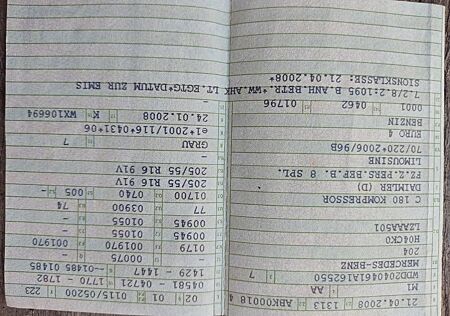 21.04.2008 1313 ABK00018 4
M1 AA
WDD2040461A162550 7
MERCEDES-BENZ
204
H04CK0
LZAAA501
C 180 KOMPRESSOR
DAIMLER (D)
FZ.Z.PERS.BEF.B. 8 SPL.
LIMOUSINE
70/220*2006/96B
EURO 4
BENZIN
0001 0462 01796
7.2/8.2:1095 B.ANH.BETR.*WW.AHK LT.EGTG*DATUM ZUR EMIS
SIONSKLASSE: 21.04.2008*
02 01 0115/05200 223
04581 - 04721 - 1770 - 1782
1429 - 1447 --01485 01485
- 00075 -
0179 001970 001970
00945 01055 -
00945 01055 -
77 03900 74
01700 0740 005 -
205/55 R16 91V
205/55 R16 91V
-
GRAU 7
e1*2001/116*0431*06
24.01.2008 K WX106694
-